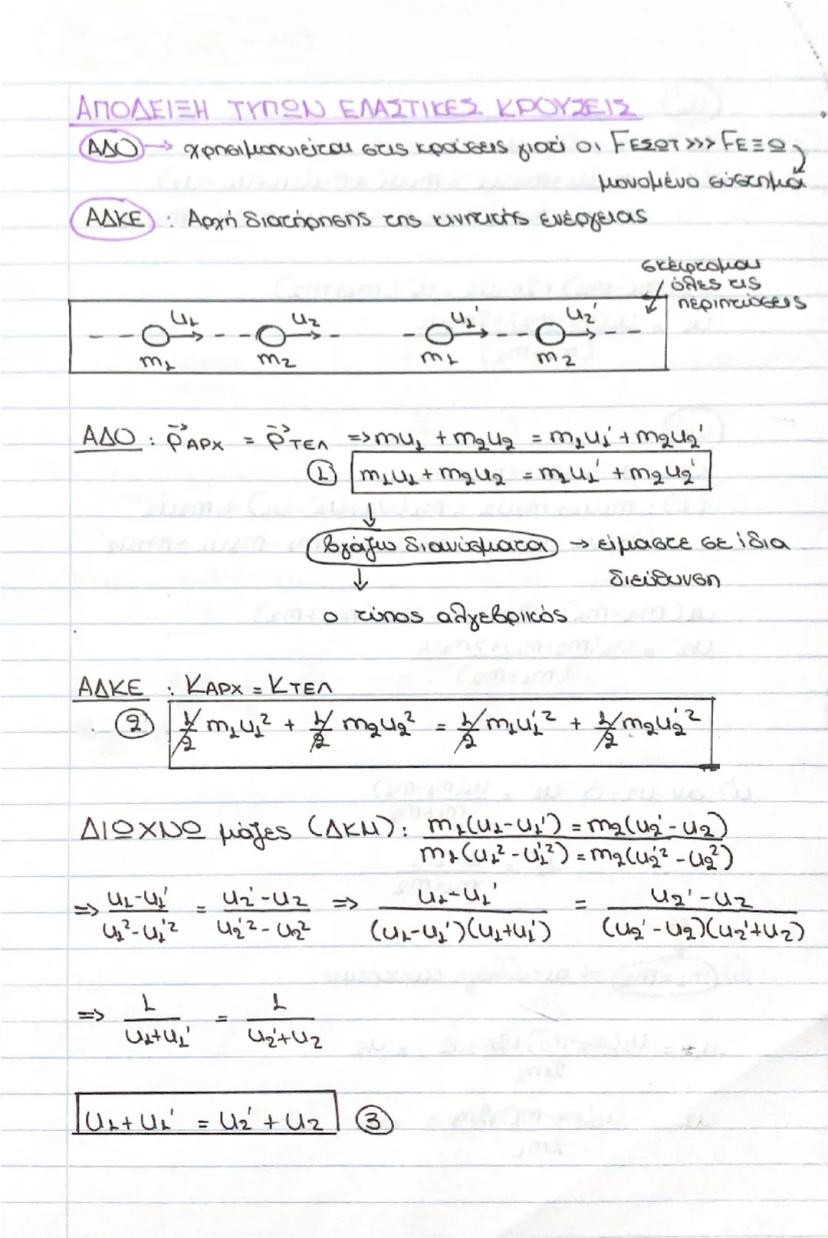 ΑΠΟΔΕΙΞΗ ΤΥΠΩΝ ΕΛΑΣΤΙΚΕΣ ΚΡΟΥΣΕΙΣ
ΑΔΟ → χρησιμοποιείται στις κρούσεις γιατί οι FΕΣΩΤ >>> FΕΞΩ
μονομένο σύστημα
ΑΔΚΕ : Αρχή διατήρησης της κινητικής ενέργειας
σκέφτομαι
όλες τις
περιπτώσεις
u₁ u₂ u₁' u₂'
m₁ m₂ m₁ m₂
ΑΔΟ : p⃗ΑΡΧ = p⃗ΤΕΛ => mu₁ + m₂u₂ = m₁u₁' + m₂u₂'
① m₁u₁ + m₂u₂ = m₁u₁' + m₂u₂'
↓
βγάζω διανύσματα → είμαστε σε ίδια
διεύθυνση
↓
ο τύπος αλγεβρικός
ΑΔΚΕ : ΚΑΡΧ = ΚΤΕΛ
② 1/2 m₁u₁² + 1/2 m₂u₂² = 1/2 m₁u₁'² + 1/2 m₂u₂'²
ΔΙΩΧΝΩ μάζες (ΔΚΜ): m₁(u₁-u₁') = m₂(u₂'-u₂)
m₁(u₁²-u₁'²) = m₂(u₂'²-u₂²)
=> (u₁-u₁')/(u₁²-u₁'²) = (u₂'-u₂)/(u₂'²-u₂²) => (u₁-u₁')/((u₁-u₁')(u₁+u₁')) = (u₂'-u₂)/((u₂'-u₂)(u₂'+u₂))
=> 1/(u₁+u₁') = 1/(u₂'+u₂)
u₁+u₁' = u₂'+u₂ ③